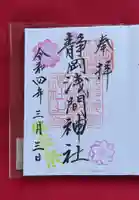 奉拝
静岡浅間神社
令和四年三月三日